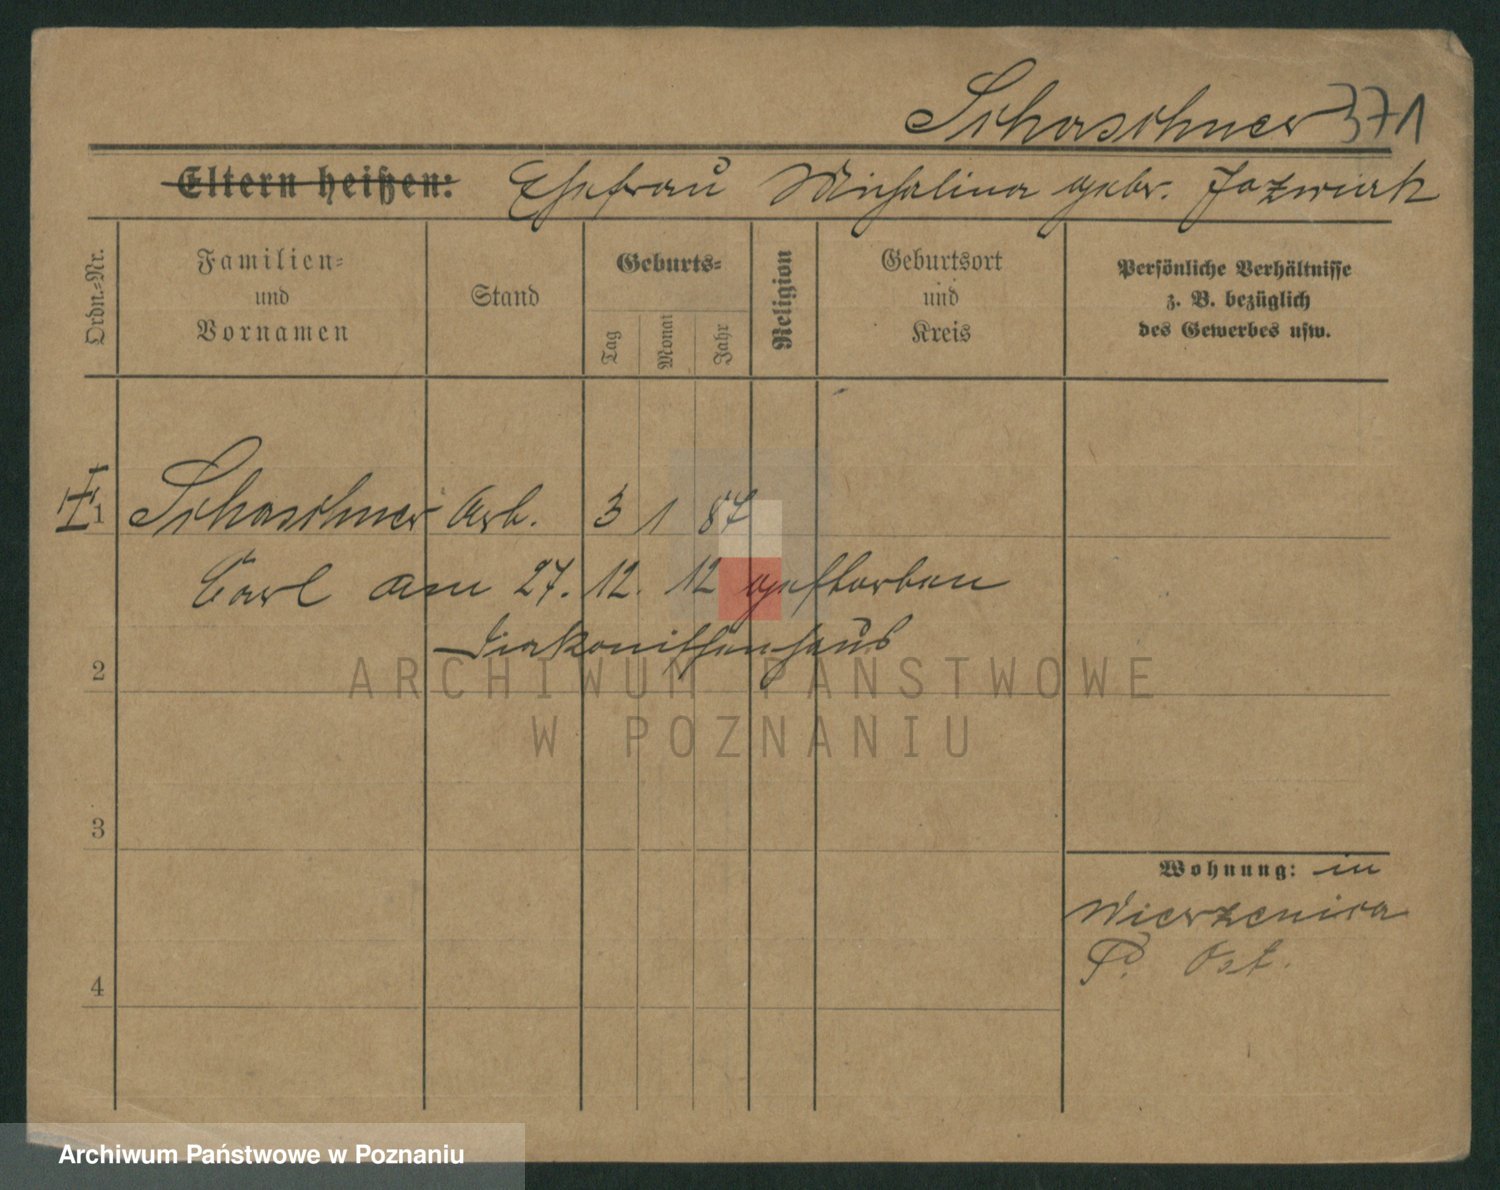 Schaschner 371
Eltern heißen: Ehefrau Michalina gebr. Jazwiak
Ordn.-Nr.
Familien-
und
Vornamen
Stand
Geburts-
Tag
Monat
Jahr
Religion
Geburtsort
und
Kreis
Persönliche Verhältnisse
z. B. bezüglich
des Gewerbes usw.
1 Schaschner Arb. 3 1 87
Carl am 27. 12. 12 gestorben
Diakonissenhaus
2
3
4
Wohnung: in
Wierzenica
P. Ost.
ARCHIWUM PAŃSTWOWE
W POZNANIU
Archiwum Państwowe w Poznaniu